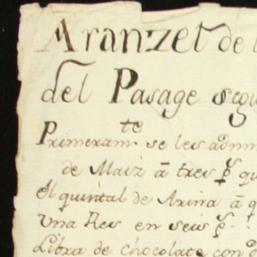 Aranzel de l
del Pasage segu
Primeramte se les admi
de Maiz â tres ps qu
el quintal de Arina â q
Una Res en seis ps
Libra de chocolate con